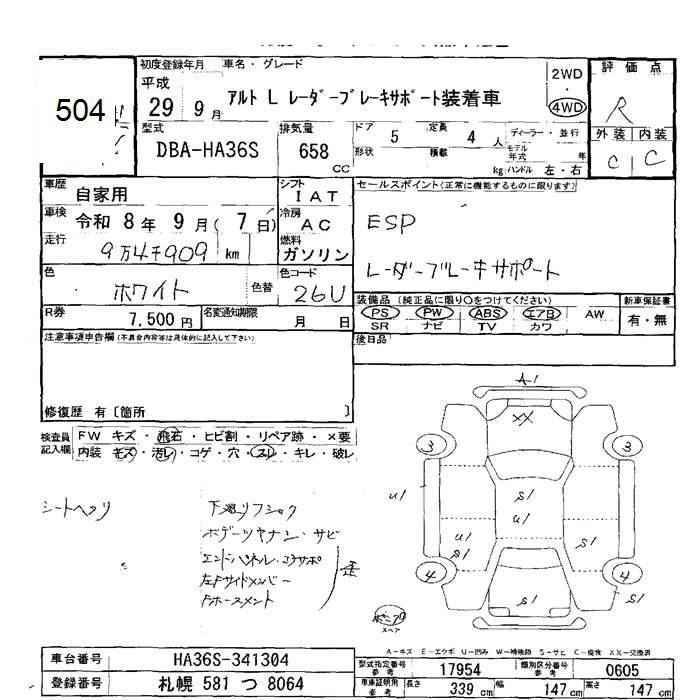 504
初度登録年月 車名・グレード
平成
29 9月
アルト L レーダーブレーキサポート装着車
2WD
・
4WD
評価点
R
外装 内装
C C
型式
DBA-HA36S
排気量
658 CC
ドア 5 定員 4 人
形状 積載 kg
ディーラー・並行
モデル年式 年
ハンドル 左・右
車歴 自家用
シフト I A T
セールスポイント(正常に機能するものに限ります)
車検 令和 8年 9月( 7日)
冷房 A C
ESP
走行 9万4千909 km
燃料 ガソリン
レーダーブレーキサポート
色 ホワイト 色替
色コード 26U
装備品 (純正品に限り○をつけてください)
新車保証書
PS PW ABS エアB AW
有・無
SR ナビ TV カワ
R券 7,500円
名変通知期限 月 日
後日品
注意事項申告欄 (不具合内容等は具体的に記入して下さい)
修復歴 有〔箇所 〕
検査員記入欄
FW キズ・飛石・ヒビ割・リペア跡・×要
内装 キズ・汚レ・コゲ・穴・スレ・キレ・破レ
シートヘタリ
下廻リフショク
ボデーツヤナシ・サビ
エンドパネル・コアサポ
左Fサイドメンバー
Fホースメント
歪
A-1
XX
3 3
S1
U1
U1
U1
S1
S1
4 4
S1
スペア
A-キズ E-エクボ U-凹み W-補修跡 S-サビ C-腐食 XX-交換済
車台番号 HA36S-341304
登録番号 札幌 581 つ 8064
型式指定番号 参考 17954
類別区分番号 参考 0605
車庫証明用 参考 長さ 339 cm 幅 147 cm 高さ 147 cm